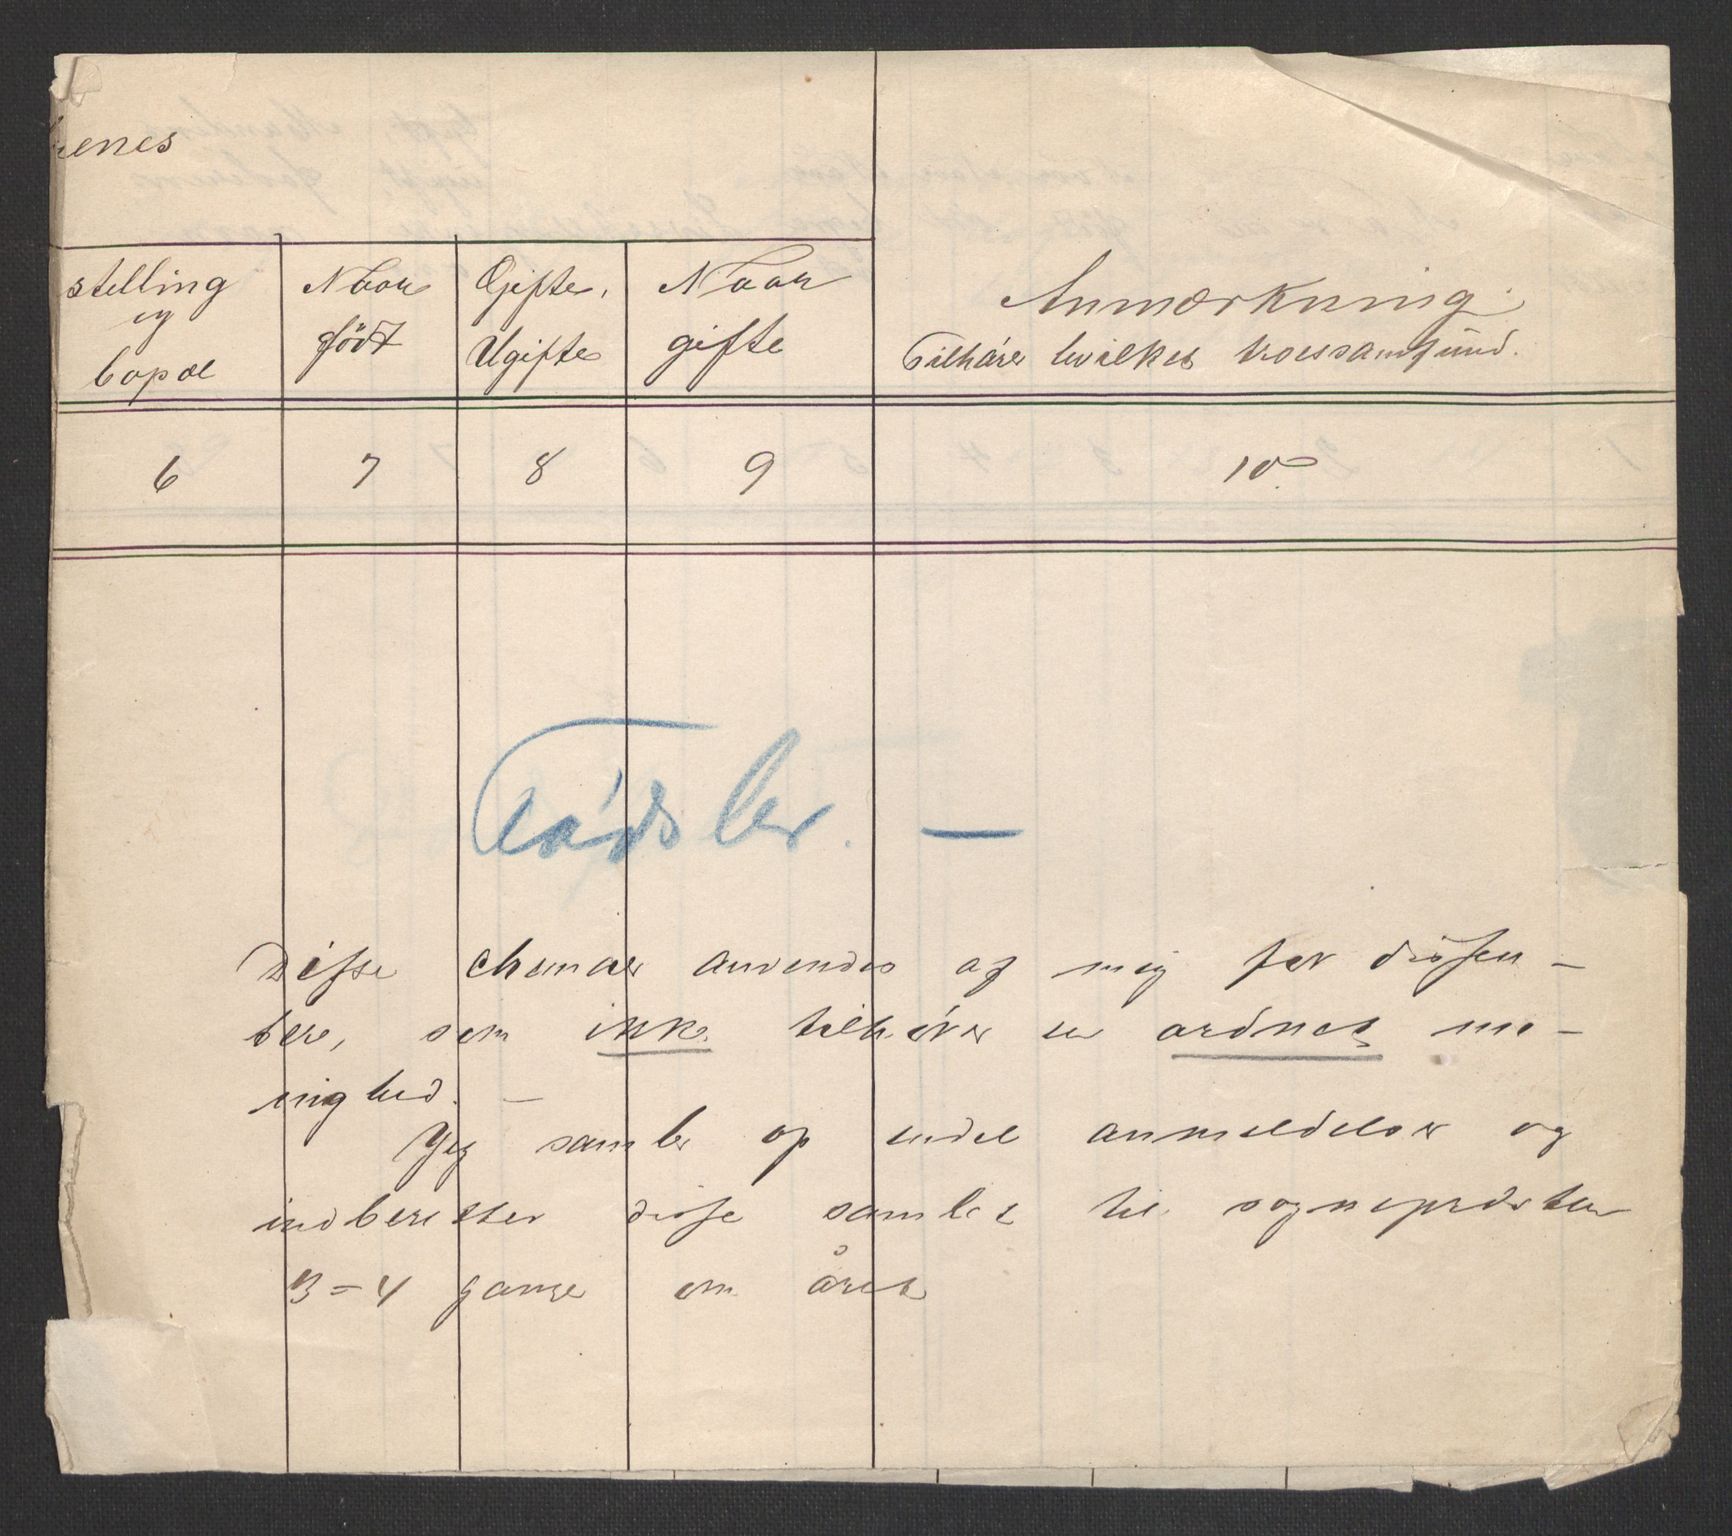 enes
stelling
og
bopæl
Naar
født
Gifte,
Ugifte
Naar
gifte
Anmærkning.
Tilhører hvilket troessamfund.
6 7 8 9 10
Fødsler. —
Disse chemaer anvendes af mig for dissen-
tere, som ikke tilhører en ordnet me-
nighed. —
Jeg samler op endel anmeldelser og
indberetter disse samlet til sognepresten
3=4 gange om året